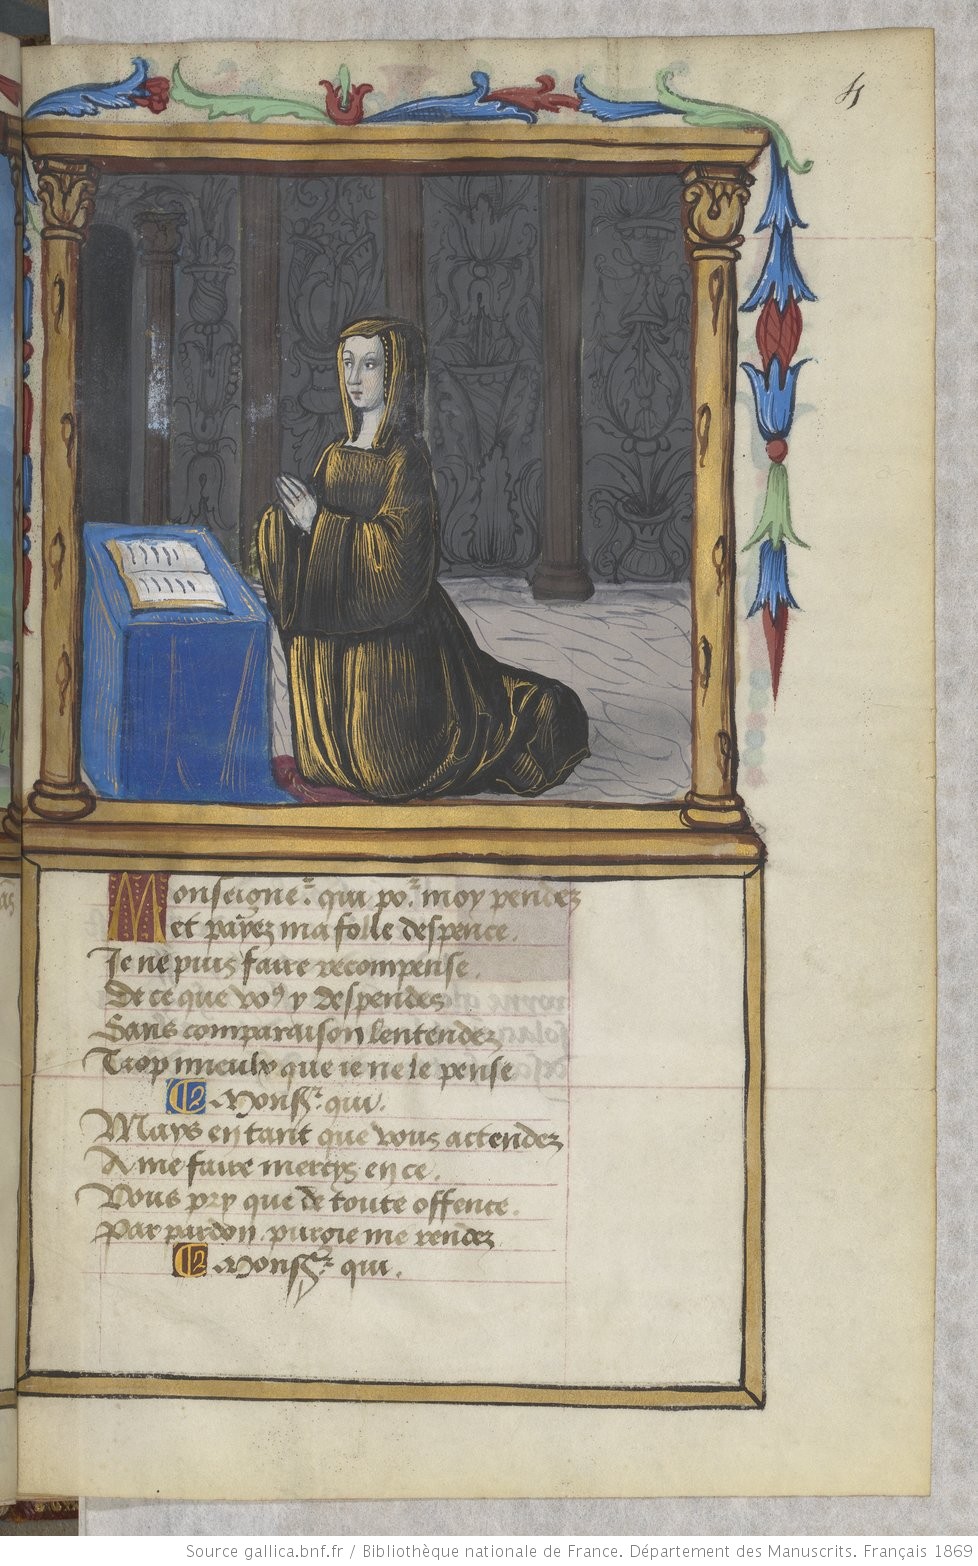 4
Monseigne.r qui po.r moy pendez
et payez ma folle despence.
Je ne puis faire recompense.
De ce que vo9 y despendez
Sans comparaison lentendez
Trop mieulx que ie ne le pense
Mons.r qui.
Mays en tant que vous actendez
A me faire mercys en ce.
Vous pry que de toute offence.
Par pardon. purgie me rendez
Mons.r qui.
Source gallica.bnf.fr / Bibliothèque nationale de France. Département des Manuscrits. Français 1869